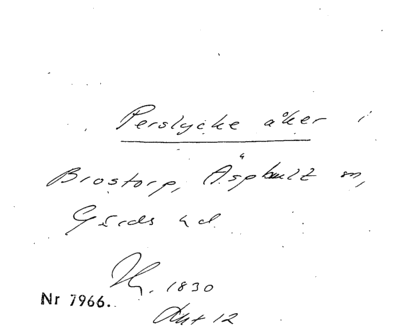 Perslycke åker i
Brostorp, Äsphult sn,
Gärds hd
1830
Nr 7966.
12